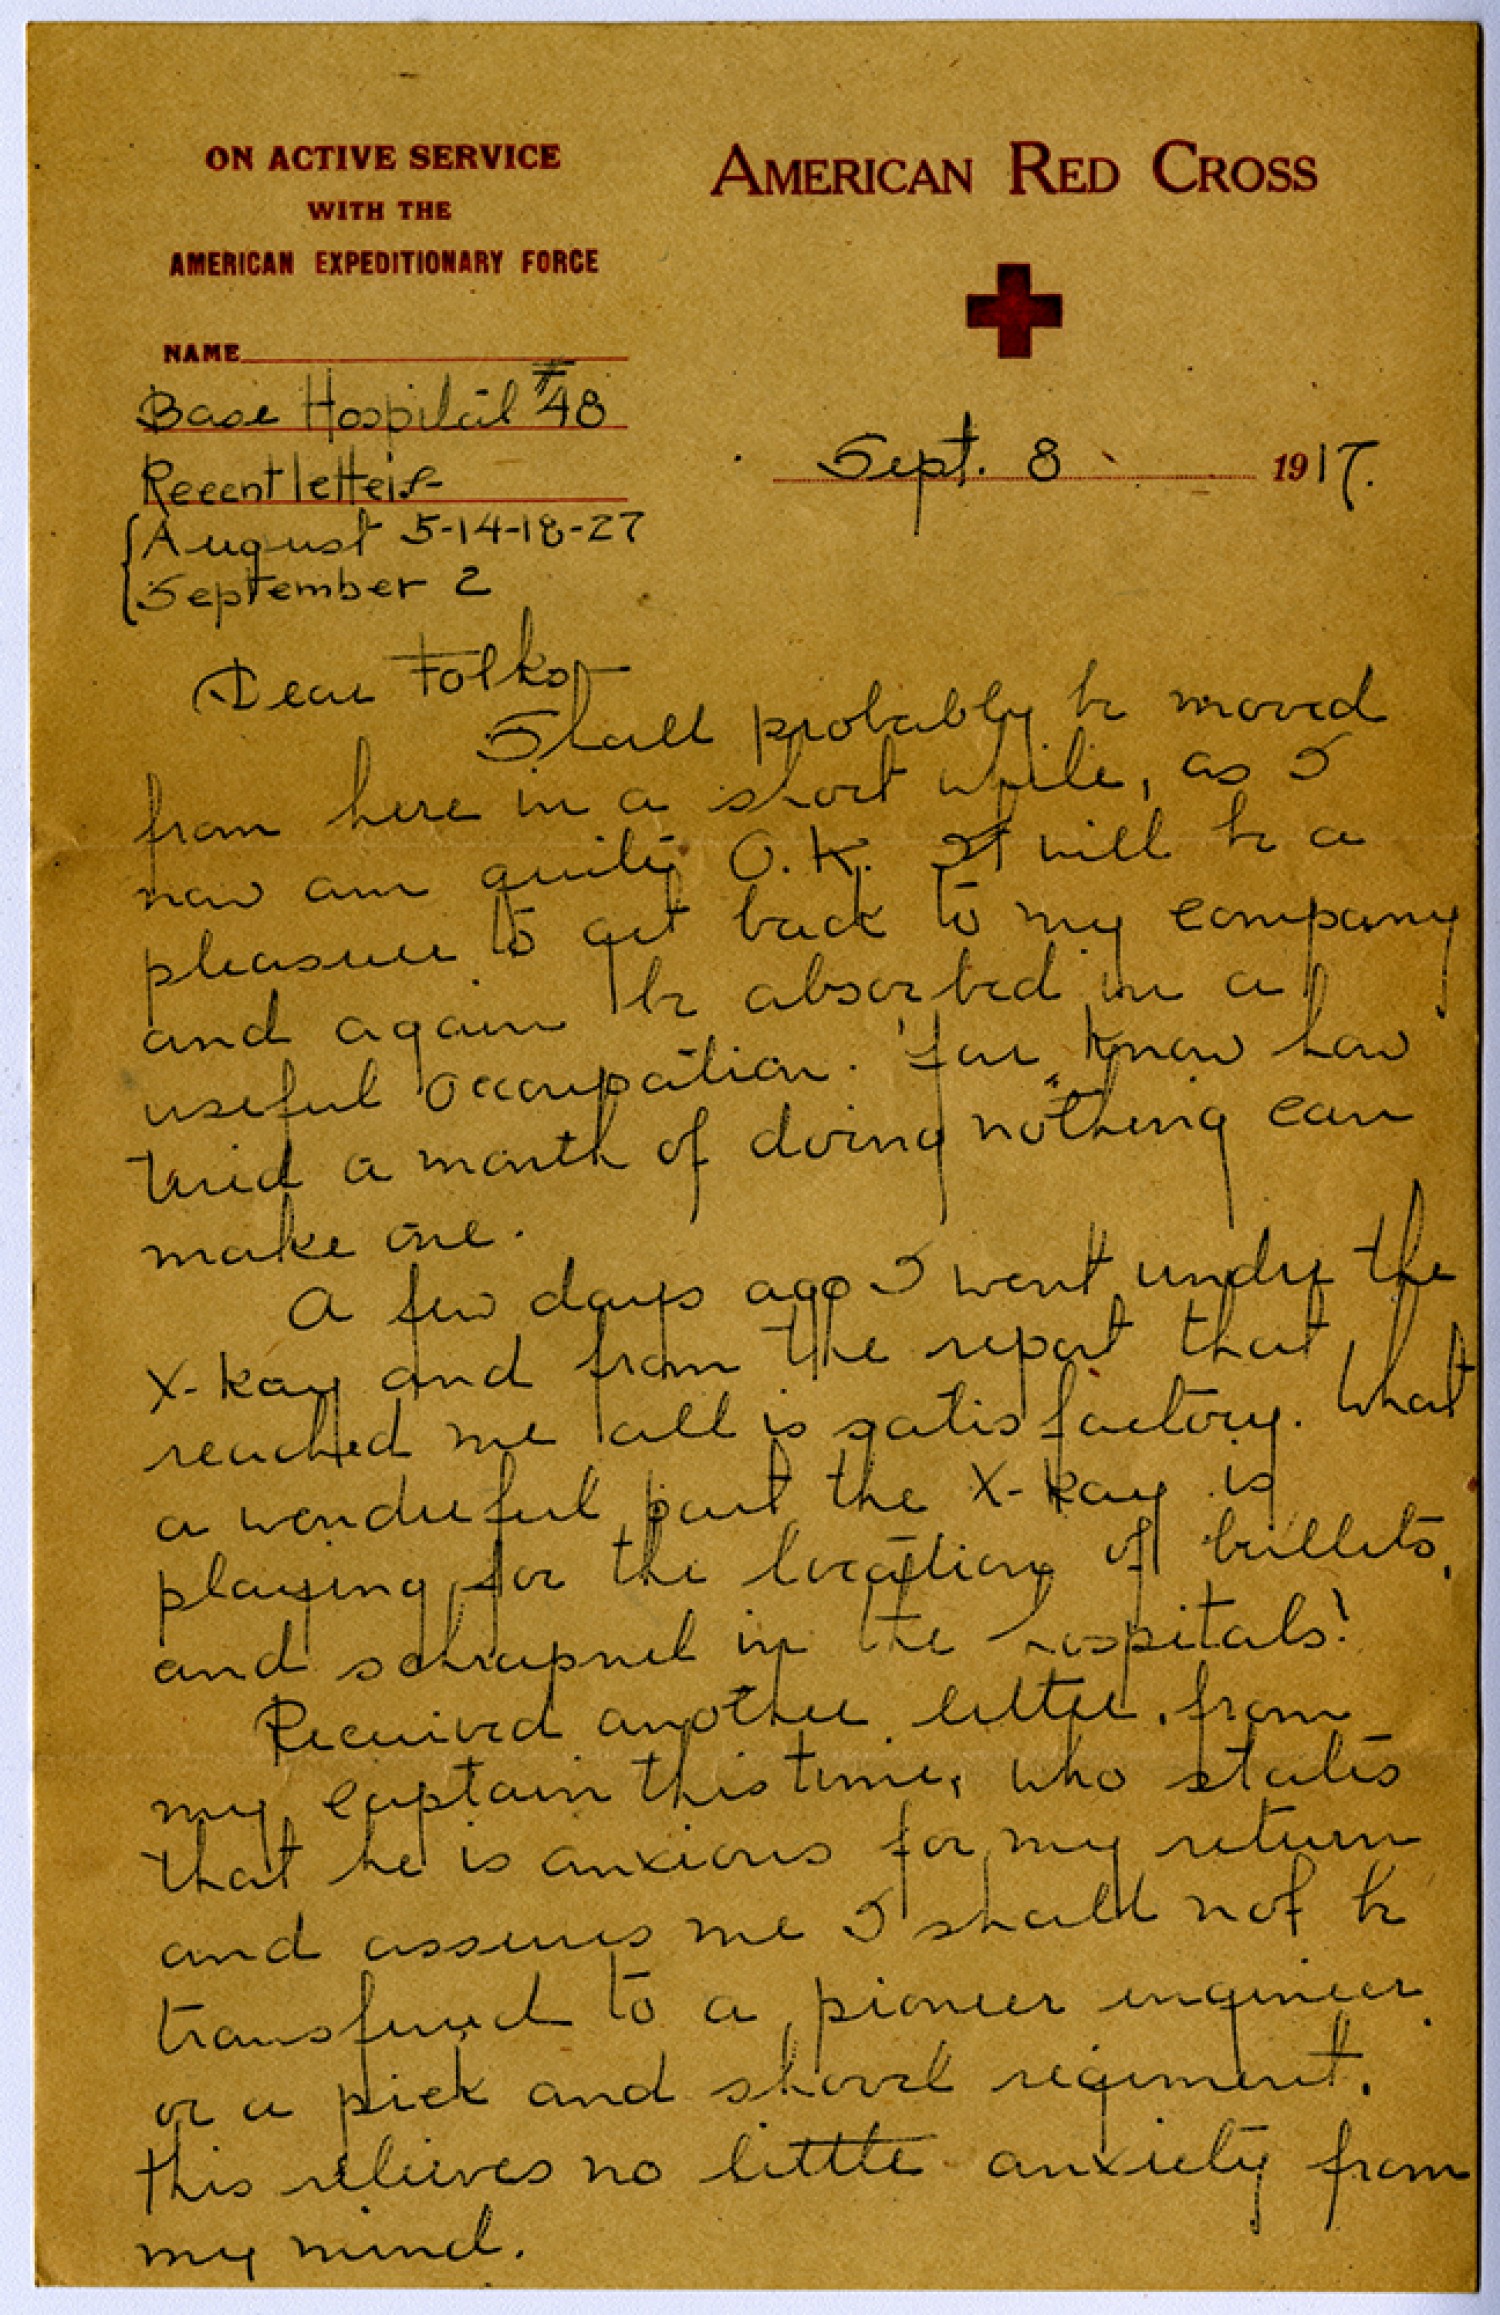 ON ACTIVE SERVICE
WITH THE
AMERICAN EXPEDITIONARY FORCE
AMERICAN RED CROSS
NAME
Base Hospital #48
Recent letters-
August 5-14-18-27
September 2
Sept. 8 1917.
Dear Folks-
Shall probably be moved
from here in a short while, as I
now am quite O.K. It will be a
pleasure to get back to my company
and again be absorbed in a
useful occoupation. You know how
tired a month of doing "nothing can
make one.
A few days ago I went under the
X-Ray and from the report that
reached me all is satisfactory. What
a wonderful part the X-Ray is
playing for the location of bullets,
and schrapnel in the hospitals!
Received another letter, from
my captain this time, who states
that he is anxious for my return
and assures me I shall not be
transfered to a pioneer engineer
or a pick and shovel regiment.
this relieves no little anxiety from
my mind.